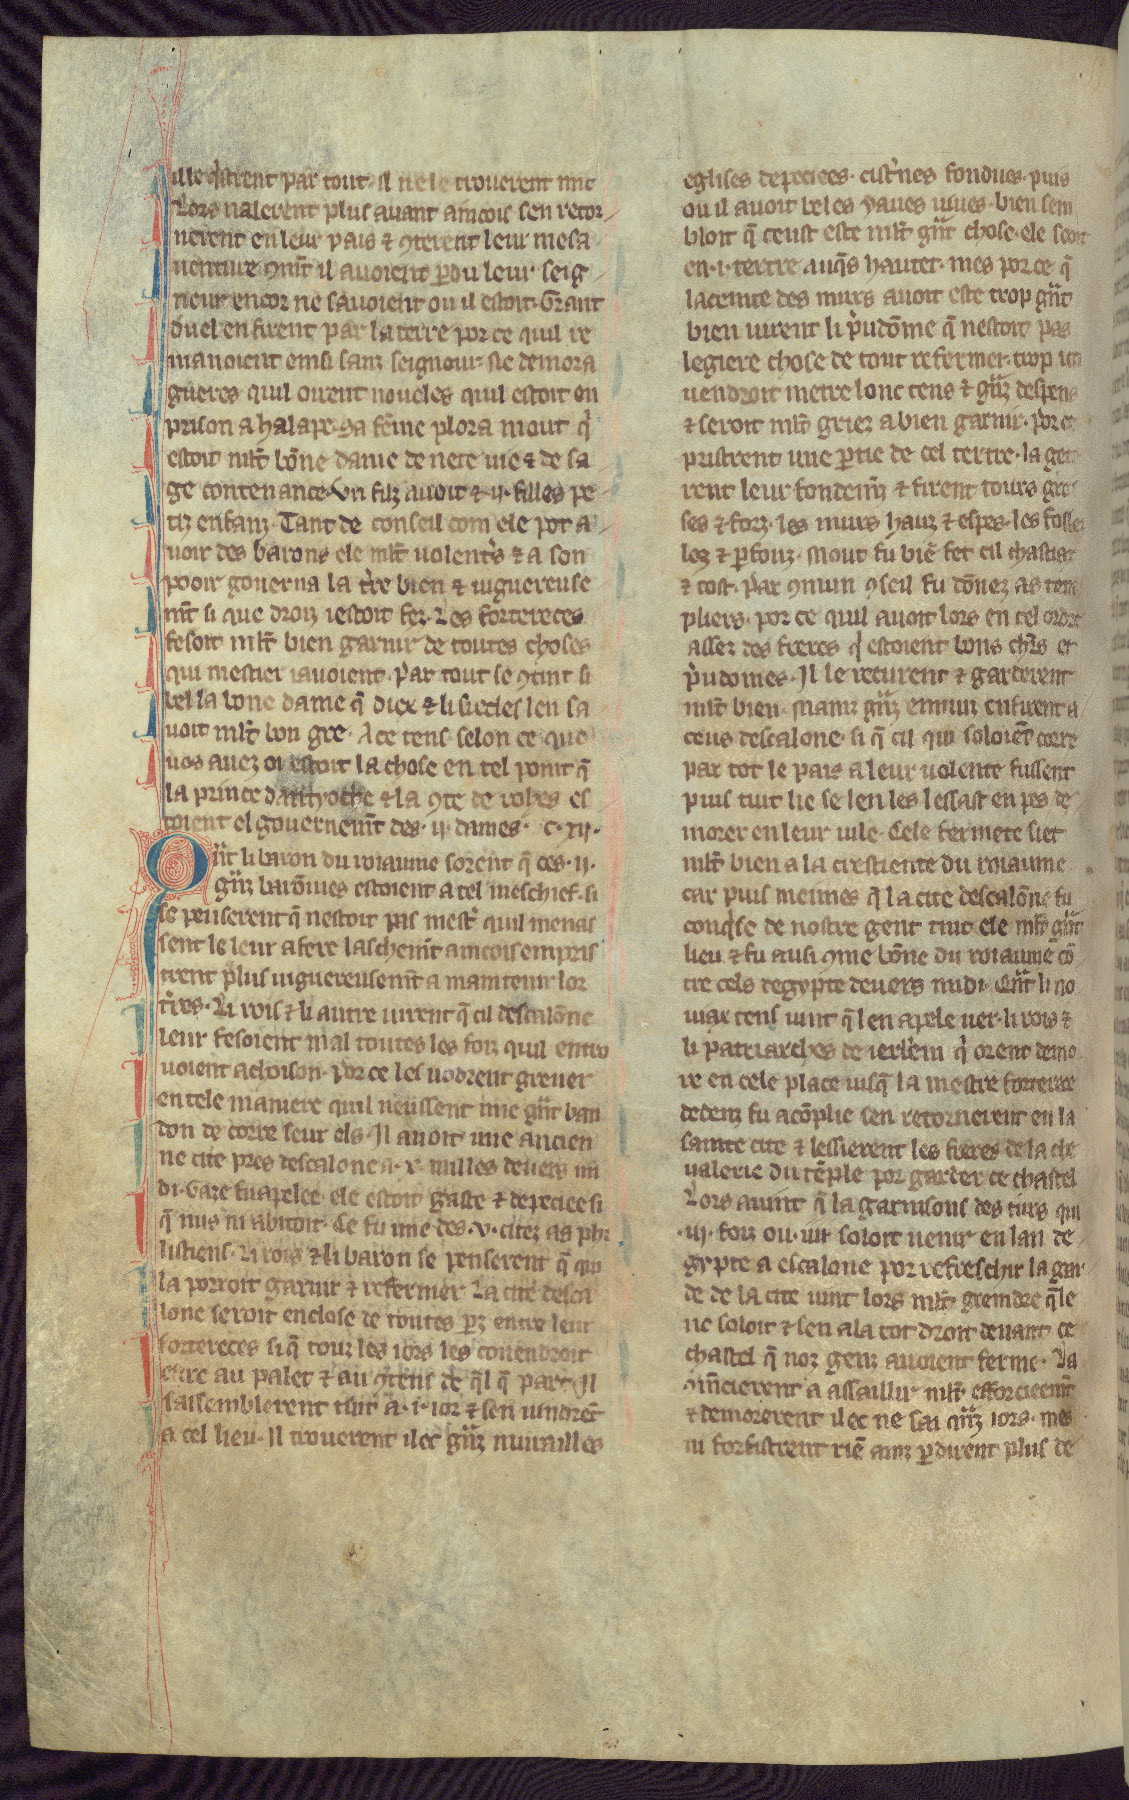 uile q̃strent par tout. il ne le trouerent mie
Lors nalerent plus auant aincois sen retor
nerent en leur pais & 9terent leur mesa
uenture 9mt̃ il auoient ꝑdu leur seig
neur encor ne sauoient ou il estoit. Grant
duel en firent par la terre por ce quil re
manoient einsi sanz seigneur. ne demora
gueres quil oirent noueles quil estoit en
prison a halape. Sa feme plora mout q̃
estoit ml̃t bõne dame de nete uie & de sa
ge contenance. Un filz auoit & .ij. filles pe
tiz enfanz. Tant de conseil com ele pot a
uoir des barons ele ml̃t uolentrs & a son
pooir gouerna la t̃re bien & uiguereuse
mt̃ si que droiz iestoit fez. Les fortereces
fesoit ml̃t bien garnir de toutes choses
qui mestier iauoient. par tout se 9tint si
bel la bone dame q̃ diex & li siecles len sa
uoit ml̃t bon gre. A ce tens selon ce que
uos auez oi estoit la chose en tel point q̃
la prince dantyoche & la 9te de rohes es
toient el gouernemt̃ des .ij. dames. c.xij.
Qñt li baron du roiaume sorent q̃ ces .ij.
gñz barõnies estoient a tel meschief. si
se penserent q̃ nestoit pas mest̃ quil menas
sent le leur afere laschemt̃ aincois empris
trent plus uiguereusemt̃ a maintenir lor
t̃res. Li rois & li autre uirent q̃ cil descalõne
leur fesoient mal toutes les foiz quil entro
uoient achoison. por ce les uodrent greuer
en tele maniere quil neussent mie gñt ban
don de corre seur els. Il auoit une ancien
ne cite pres descalone a .x. milles deuers mi
di. Gaze fu apelee. ele estoit gaste & depeciee si
q̃ nus ni abitoit. Ce fu une des .v. citez as phi
listiens. Li rois & li baron se penserent q̃ qui
la porroit garnir & refermer la cite desca
lone seroit enclose de toutes ꝑz entre leur
fortereces si q̃ touz les iors les couendroit
estre au palet & au 9tens de q̃l q̃ part. Il
sassemblerent tuit a .i. ior & sen uindrẽt
a cel lieu. Il trouerent ilec gñz murailles
eglises depeciees. cist̃nes fondues. puis
ou il auoit beles yaues uiues. bien sem
bloit q̃ ceust este ml̃t gñt chose. ele seoit
en .i. tertre auq̃s hautet. mes por ce q̃
la ceinte des murs auoit este trop gñt
bien uirent li p̃udõme q̃ nestoit pas
legiere chose de tout refermer. trop
uendroit metre lonc tens & gñz despens
& seroit ml̃t griez a bien garnir. por ce
pristrent une ꝑtie de cel tertre. la get
rent leur fondemz̃ & firent tours gros
ses & forz. les murs hauz & espes. les fosse
lez & ꝑfonz. Mout fu biẽ fet cil chastiax
& tost. par 9mun 9seil fu dõnez as tem
pliers. por ce quil auoit lors en cel ordre
assez des freres q̃ estoient bons ch̃rs et
p̃udomes. Il le recurent & garderent
ml̃t bien. Mainz gñz ennuiz en firent a
ceus descalone. si q̃ cil qui soloiẽt corre
par tot le pais a leur uolente fussent
puis tuit lie se len les lessast en pes de
morer en leur uile. Cele fermete siet
ml̃t bien a la crestiente du roiaume
car puis meimes q̃ la cite descalõne fu
conq̃se de nostre gent tint ele ml̃t gñt
lieu. & fu ausi 9me bõne du roiaume cõ
tre cels degypte deuers midi. Qñt li no
uiax tens uint q̃ len apele uer. li rois &
li patriarches de ierl̃em q̃ orent demo
re en cele place iusq̃ la mestre forterece
dedenz fu acõplie sen retornerent en la
sainte cite & lessierent les freres de la che
ualerie du tẽple por garder ce chastel
Lors auint q̃ la garnisons des turs qui
.iij. foiz ou .iiij. soloit uenir en lan de
gypte a escalone por refreschir la gar
de de la cite uint lors ml̃t greindre q̃le
ne soloit & sen ala tot droit deuant ce
chastel q̃ noz genz auoient ferme. La
9mẽcierent a assaillir ml̃t efforciemt̃
& demorerent ilec ne sai qñz iors. mes
ni forfistrent riẽ ainz ꝑdirent plus de